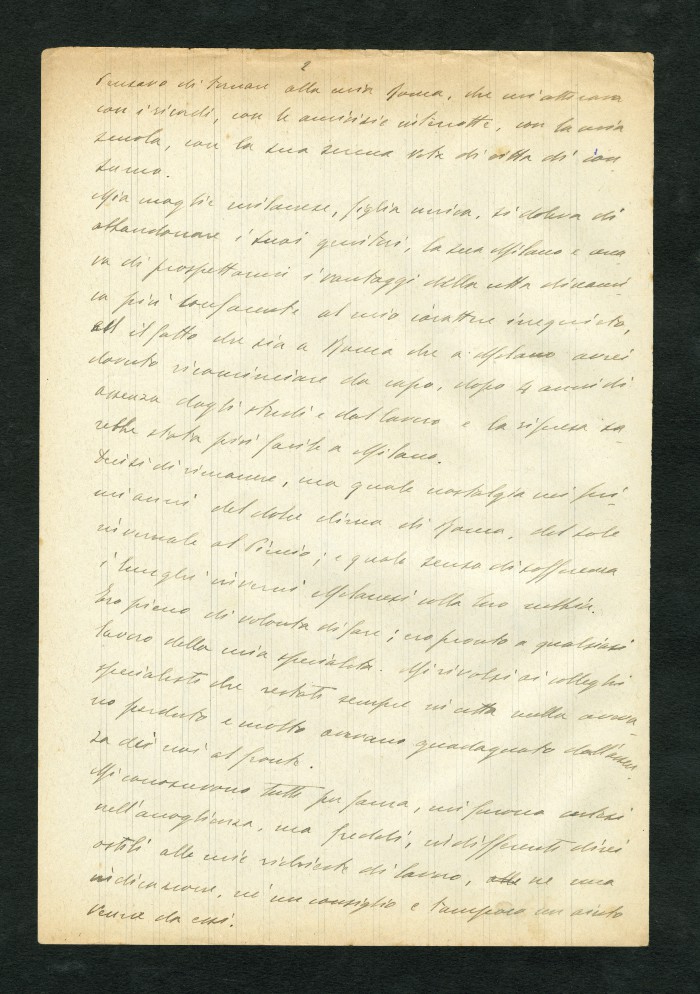 2
Pensavo di tornare alla mia Roma, che mi attirava
con i ricordi, con le amicizie interrotte, con la mia
scuola, con la sua serena vita di città di con
sumo.
Mia moglie milanese, figlia unica, si doleva di
abbandonare i suoi genitori, la sua Milano e cerca
va di prospettarmi i vantaggi della città dinami-
ca più confacente al mio carattere irrequieto,
il fatto che sia a Roma che a Milano avrei
dovuto ricominciare da capo, dopo 4 anni di
assenza dagli studi e dal lavoro e la ripresa sa-
rebbe stata più facile a Milano.
Decisi di rimanere, ma quale nostalgia nei pri-
mi anni del dolce clima di Roma, del sole
invernale al Pincio; e quale senso di sofferenza
i lunghi inverni Milanesi colla loro nebbia.
Ero pieno di volontà di fare; ero pronto a qualsiasi
lavoro della mia specialità. Mi rivolsi ai colleghi
specialisti che restati sempre in città nulla aveva-
no perduto e molto avevano guadagnato dall'assen-
za dei noi al fronte.
Mi conoscevano tutti per fama, mi furono cortesi
nell'accoglienza, ma freddi, indifferenti direi
ostili alle mie richieste di lavoro, ne una
indicazione, ne' un consiglio e tampoco un aiuto
venne da essi.